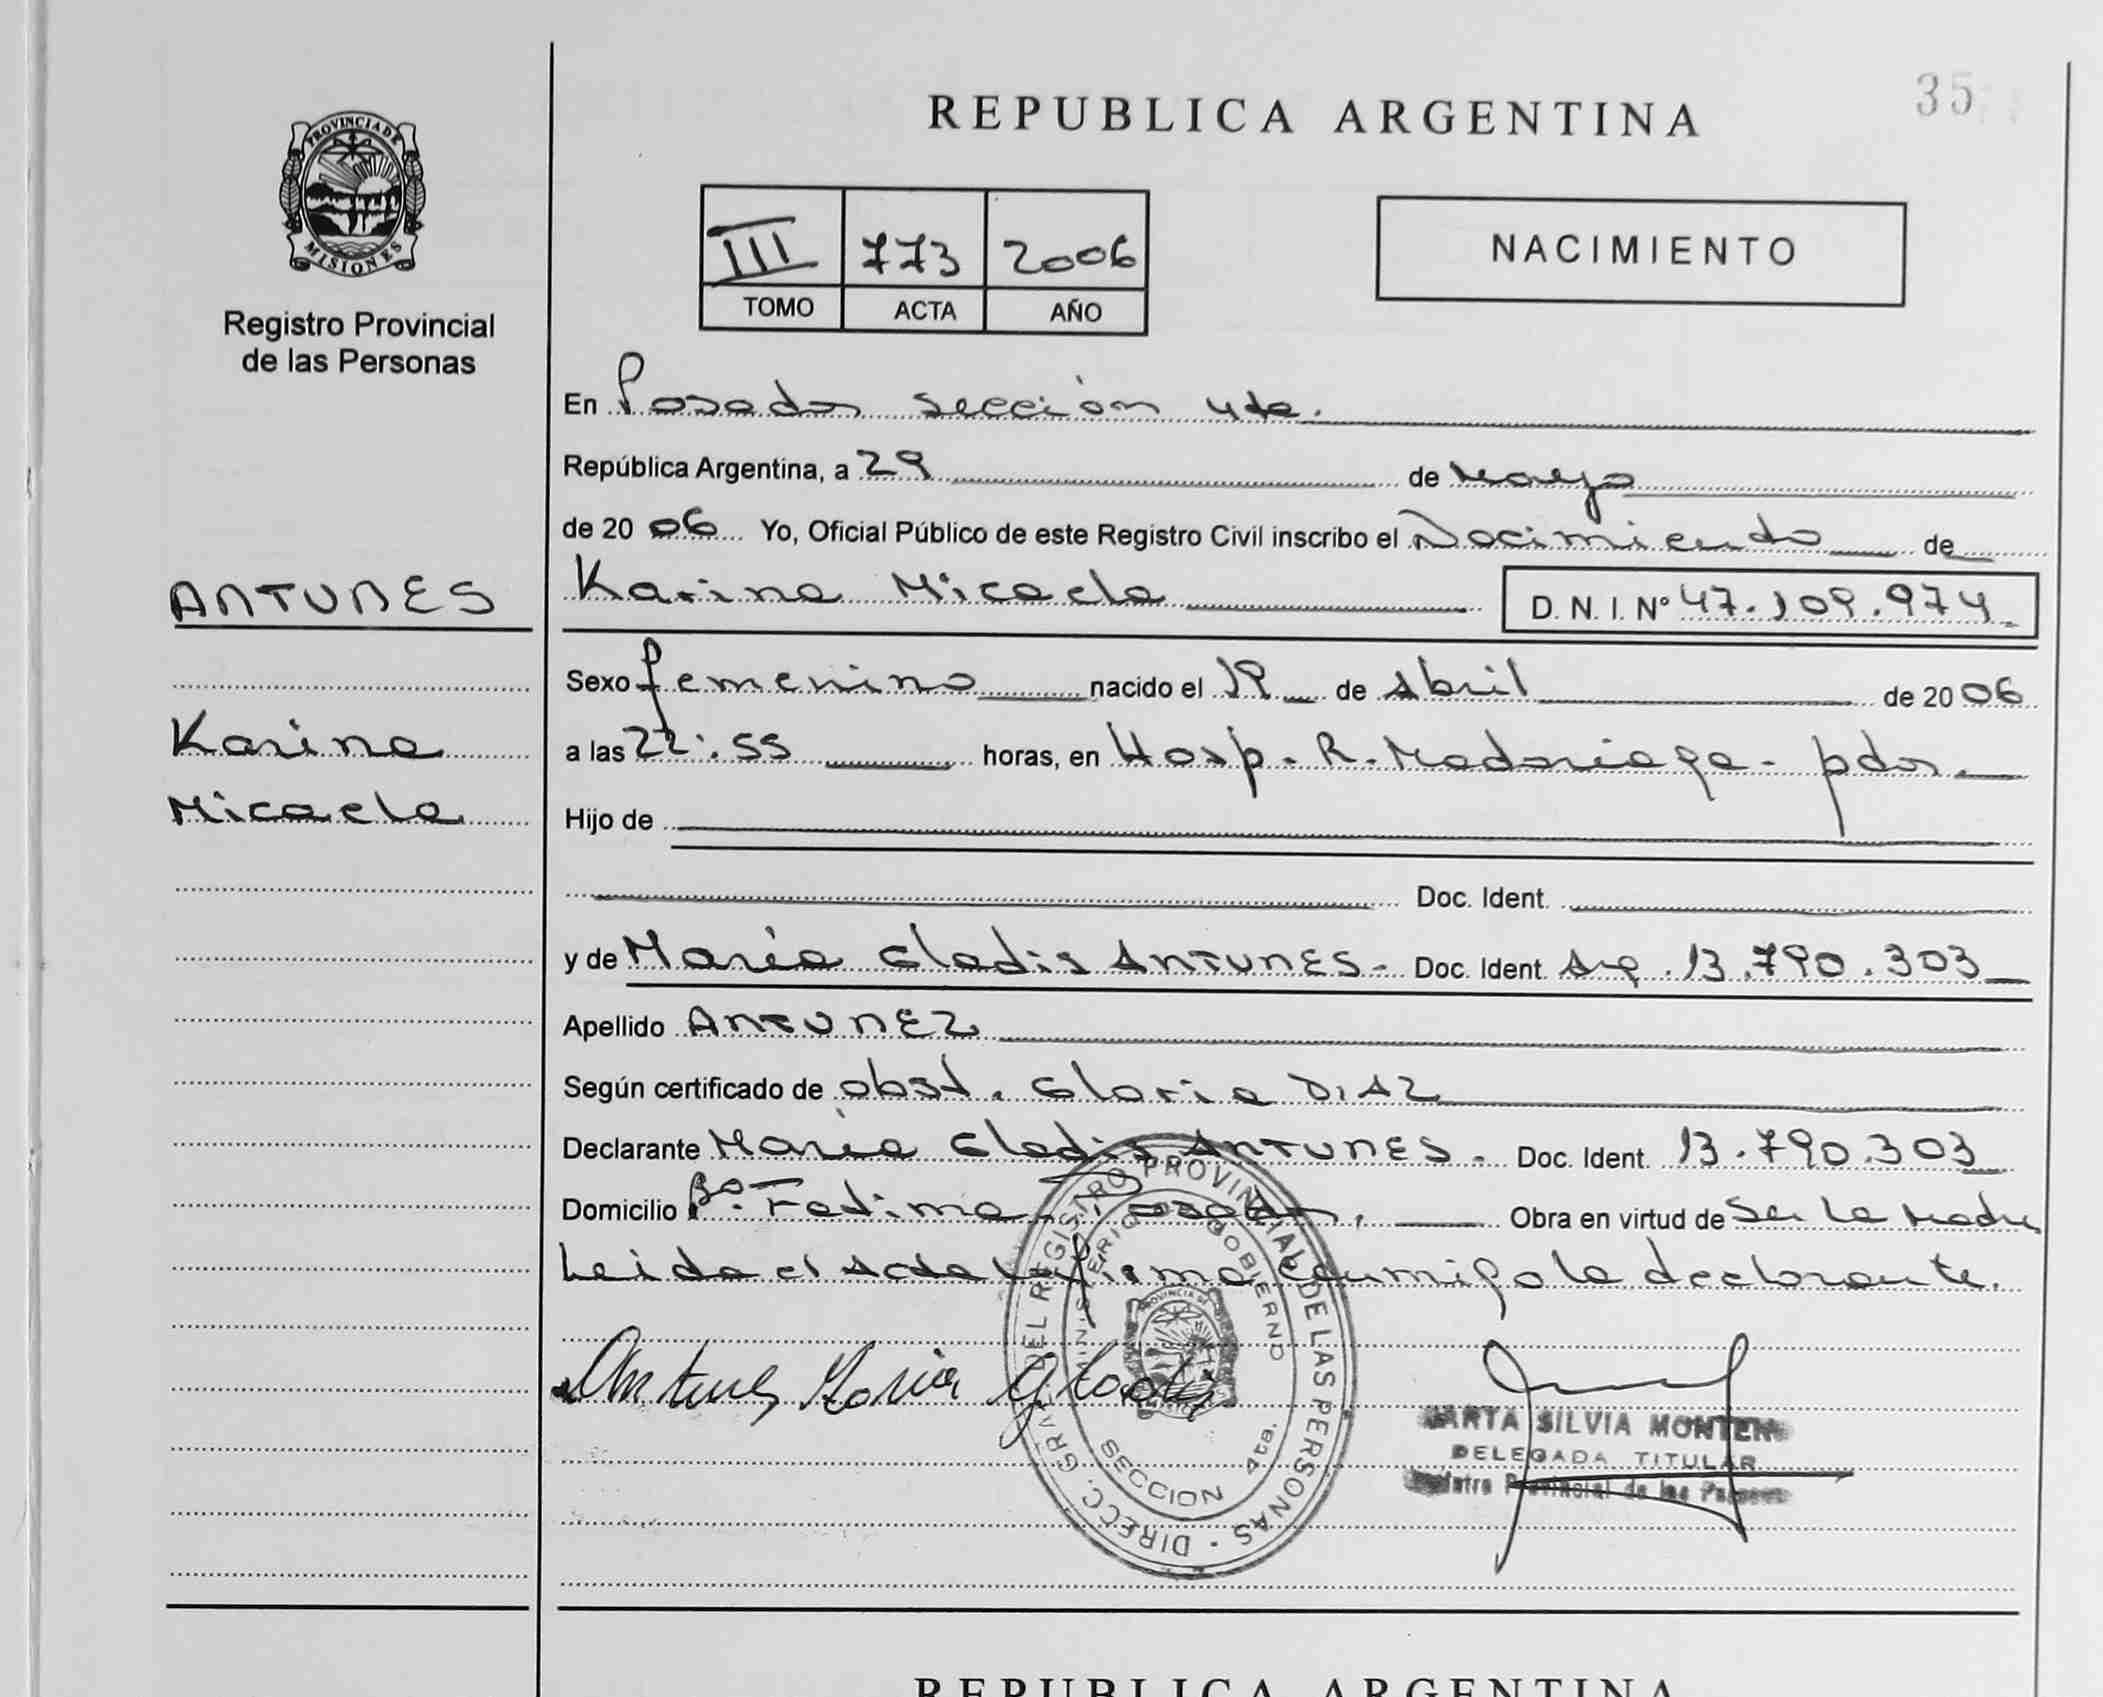 REPUBLICA ARGENTINA
35
PROVINCIA DE
MISIONES
Registro Provincial
de las Personas
III 773 2006
TOMO ACTA AÑO
NACIMIENTO
En Posadas sección 4ta.
República Argentina, a 29 de Mayo
de 20 06 Yo, Oficial Público de este Registro Civil inscribo el Nacimiento de
ANTUNES
Karina Micaela D. N. I. Nº 47.109.974
Sexo femenino nacido el 19 de Abril de 20 06
Karina
a las 22:55 horas, en Hosp. R. Madariaga - pdas.
Micaela
Hijo de
Doc. Ident.
y de María Gladis ANTUNES - Doc. Ident. Arg. 13.790.303
Apellido ANTUNEZ
Según certificado de obst. Gloria DIAZ
Declarante María Gladis ANTUNES - Doc. Ident. 13.790.303
Domicilio Bº Fatima, Posadas, Obra en virtud de Ser La Madre
Leida el Acta la firma conmigo la declarante.
Antunes Maria Gladis
DIRECC. GRAL. DEL REGISTRO PROVINCIAL DE LAS PERSONAS -
MINISTERIO GOBIERNO
PROVINCIA DE
MISIONES
SECCION 4ta.
SILVIA
DELEGADA TITULAR
Provincial de las
REPUBLICA ARGENTINA